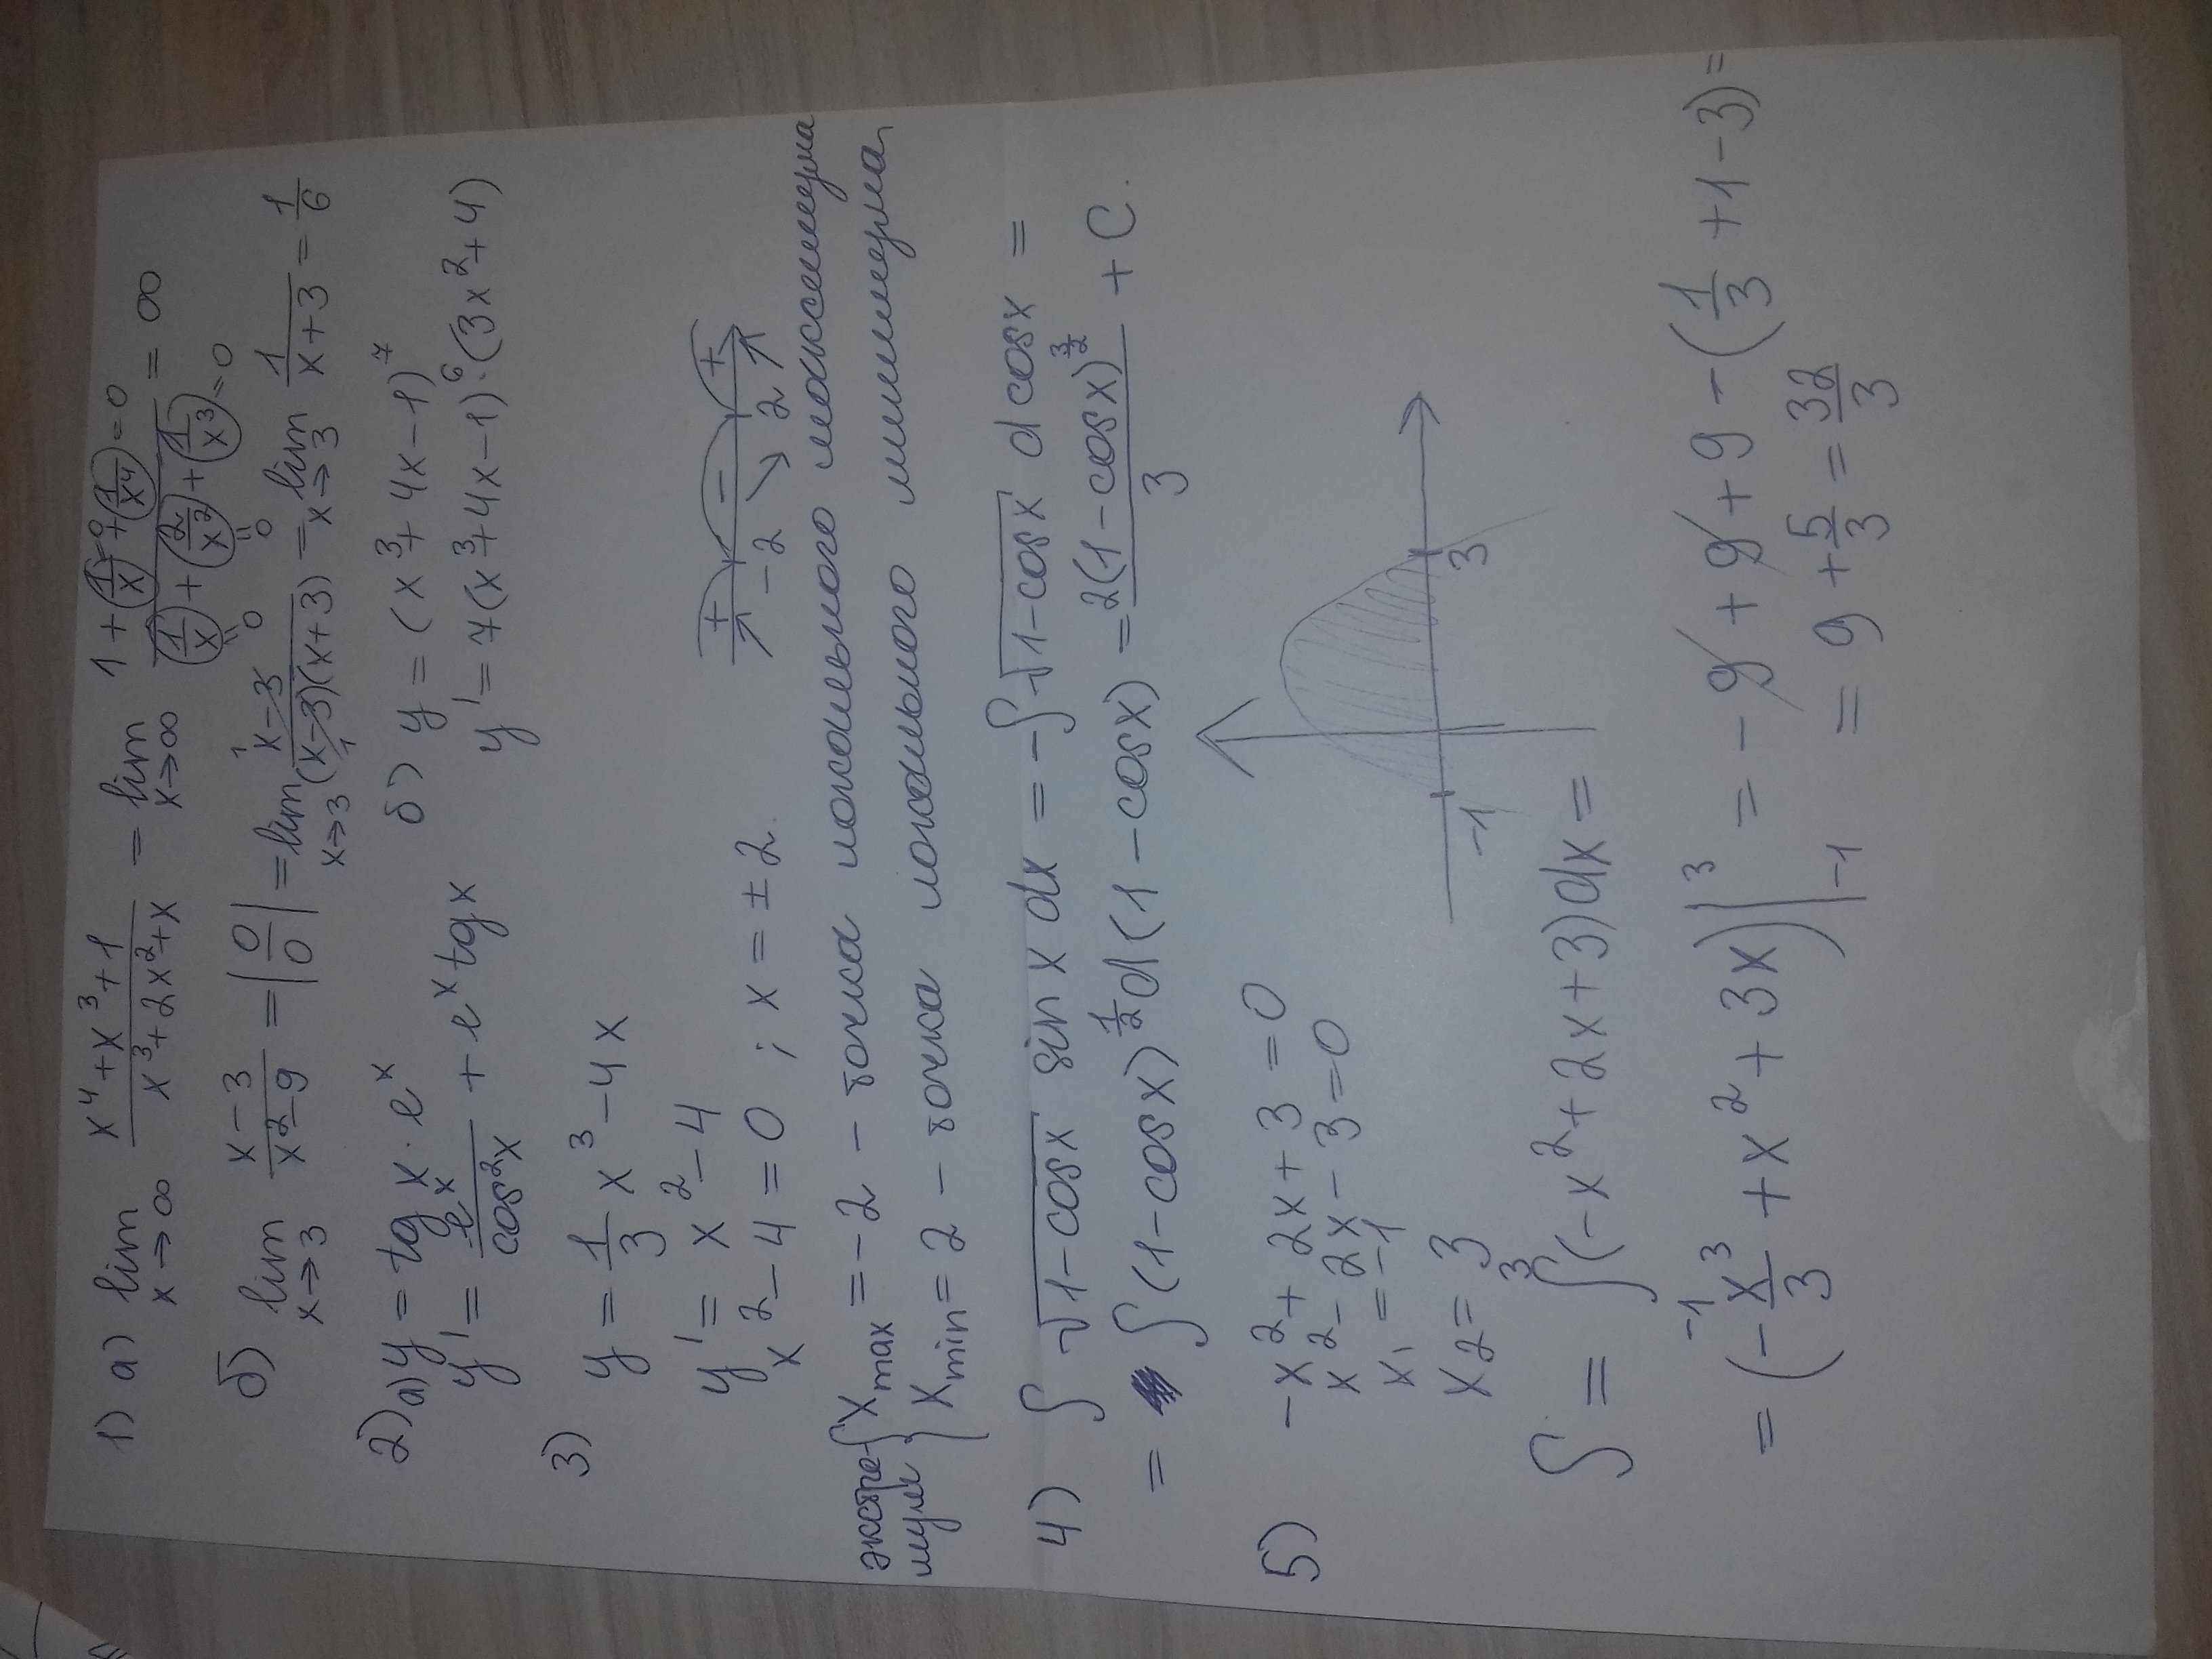 1) а) lim x→∞ (x⁴+x³+1)/(x³+2x²+x) = lim x→∞ (1+(1/x)→0+(1/x⁴)=0)/((1/x)=0+(2/x²)=0+(1/x³)=0) = ∞
б) lim x→3 (x-3)/(x²-9) = |0/0| = lim x→3 (x-3)/((x-3)(x+3)) = lim x→3 1/(x+3) = 1/6
2) а) y = tg x · eˣ
y' = eˣ/cos²x + eˣ tg x
б) y = (x³+4x-1)⁷
y' = 7(x³+4x-1)⁶·(3x²+4)
3) y = 1/3 x³ - 4x
y' = x² - 4
x² - 4 = 0 ; x = ±2.
+ - +
-2 2
экстремум { X max = -2 - точка локального максимума
X min = 2 - точка локального минимума
4) ∫ √(1-cosx) sin x dx = -∫ √(1-cosx) d cosx =
= ∫ (1-cosx)^(1/2) d(1-cosx) = 2(1-cosx)^(3/2)/3 + C.
5) -x²+2x+3=0
x²-2x-3=0
x₁=-1
x₂=3
-1 3
S = ∫₋₁³ (-x²+2x+3)dx =
= (-x³/3 + x² + 3x)|₋₁³ = -9+9+9-(1/3+1-3)=
= 9 + 5/3 = 32/3